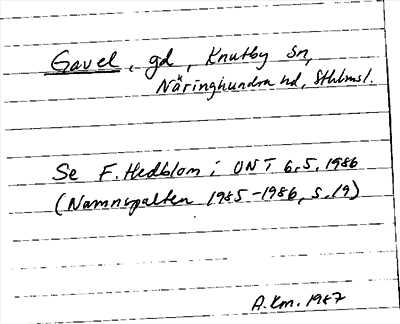 Gavel, gd, Knutby sn,
Näringhundra hd, Sthlms l.
Se F. Hedblom i UNT 6.5.1986
(Namnspalten 1985-1986, s. 19)
A.Km. 1987